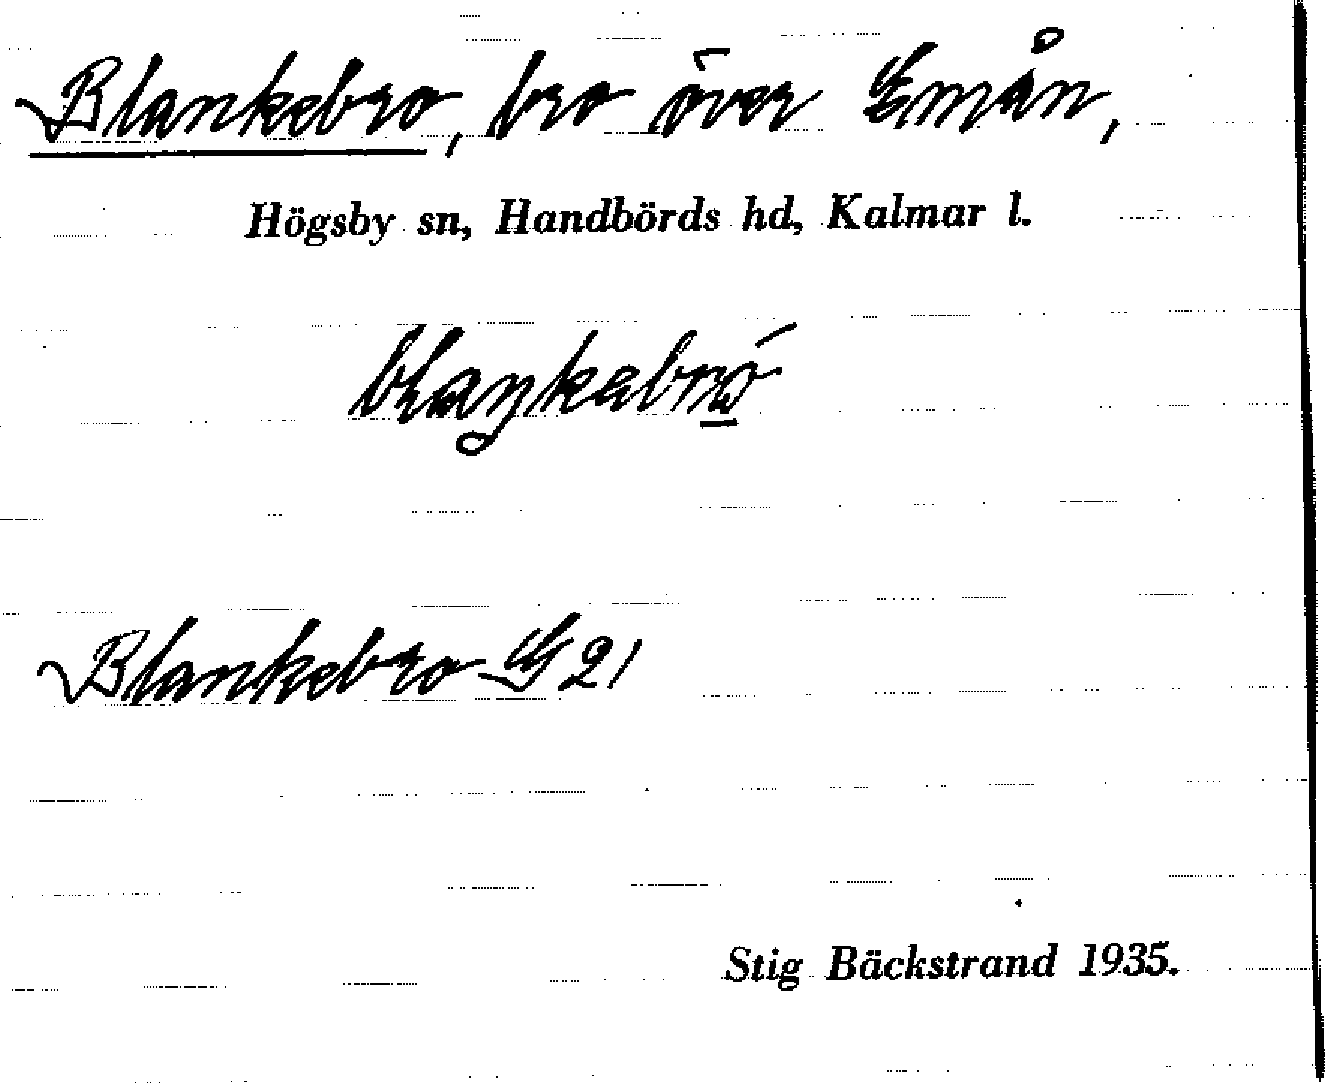 Blankebro, bro över Emån,
Högsby sn, Handbörds hd, Kalmar l.
Blankebro G 21
Stig Bäckstrand 1935.